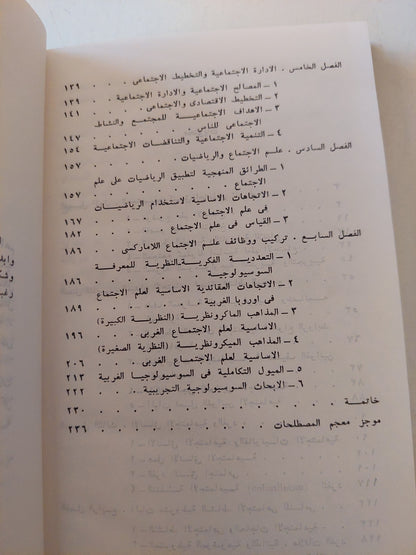 الفصل الخامس . الادارة الاجتماعية والتخطيط الاجتماعى . . ١٣٩
١ ــ المصالح الاجتماعية والادارة الاجتماعية . . . . ١٣٩
٢ ــ التخطيط الاقتصادى والاجتماعى . . . . . . ١٤١
٣ ــ الاهداف الاجتماعية للمجتمع والنشاط
الاجتماعى للناس . . . . . . . . . . ١٤٧
٤ ــ التنمية الاجتماعية والتناقضات الاجتماعية ١٥٤
الفصل السادس . علم الاجتماع والرياضيات . . . . . . ١٥٧
١ ــ الطرائق المنهجية لتطبيق الرياضيات على علم
الاجتماع . . . . . . . . . . . . ١٥٧
٢ ــ الاتجاهات الاساسية لاستخدام الرياضيات
فى علم الاجتماع . . . . . . . . . . ١٦٧
٣ ــ القياس فى علم الاجتماع . . . . . . . ١٨٢
الفصل السابع . تركيب ووظائف علم الاجتماع اللاماركسى . . ١٨٦
١ ــ التعددية الفكرية-النظرية للمعرفة
السوسيولوجية . . . . . . . . . . ١٨٦
٢ ــ الاتجاهات العقائدية الاساسية لعلم الاجتماع
فى اوروبا الغربية . . . . . . . . . ١٨٩
٣ ــ المذاهب الماكرونظرية (النظرية الكبيرة)
الاساسية لعلم الاجتماع الغربى . . . . . ١٩٦
٤ ــ المذاهب الميكرونظرية (النظرية الصغيرة)
الاساسية لعلم الاجتماع الغربى . . . . . ٢٠٦
٥ ــ الميول التكاملية فى السوسيولوجيا الغربية ٢١٣
٦ ــ الابحاث السوسيولوجية التجريبية . . . . ٢٢٢
خاتمة . . . . . . . . . . . . . . . ٢٣٠
موجز معجم المصطلحات . . . . . . . . . . ٢٣٦